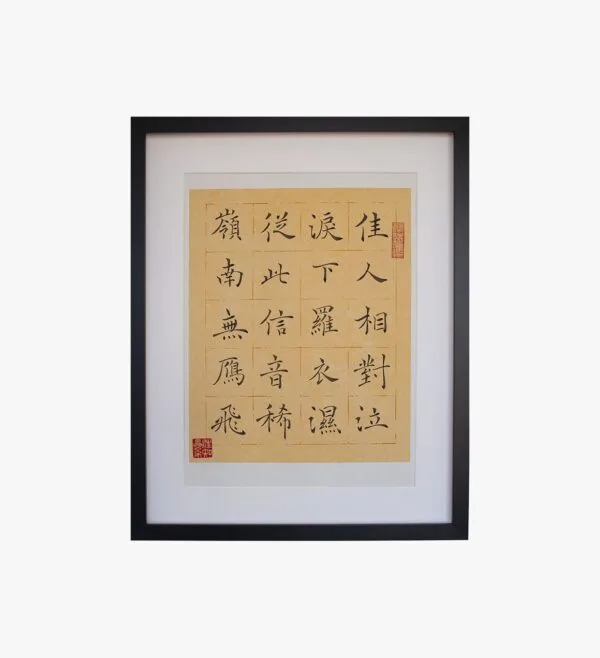 佳人相對泣
淚下羅衣濕
從此信音稀
嶺南無鴈飛